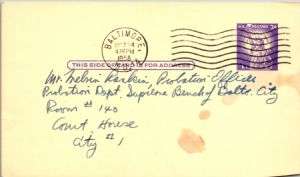 BALTIMORE
OCT 14
4 PM
1958
U.S. POSTAGE
THIS SIDE OF CARD IS FOR ADDRESS
Mr. Melvin Karkin Probation Officer
Probation Dept. Supreme Bench of Balto. City
Room # 140
Court House
City #1